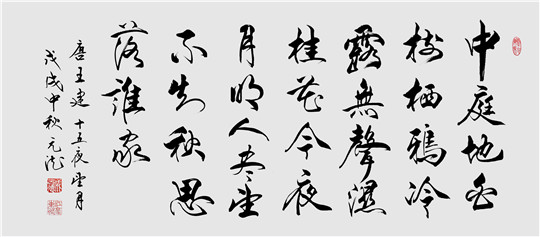 中庭地白
樹栖鴉冷
露無聲濕
桂花今夜
月明人盡望
不知秋思
落誰家
唐王建 十五夜望月
戊戌中秋元